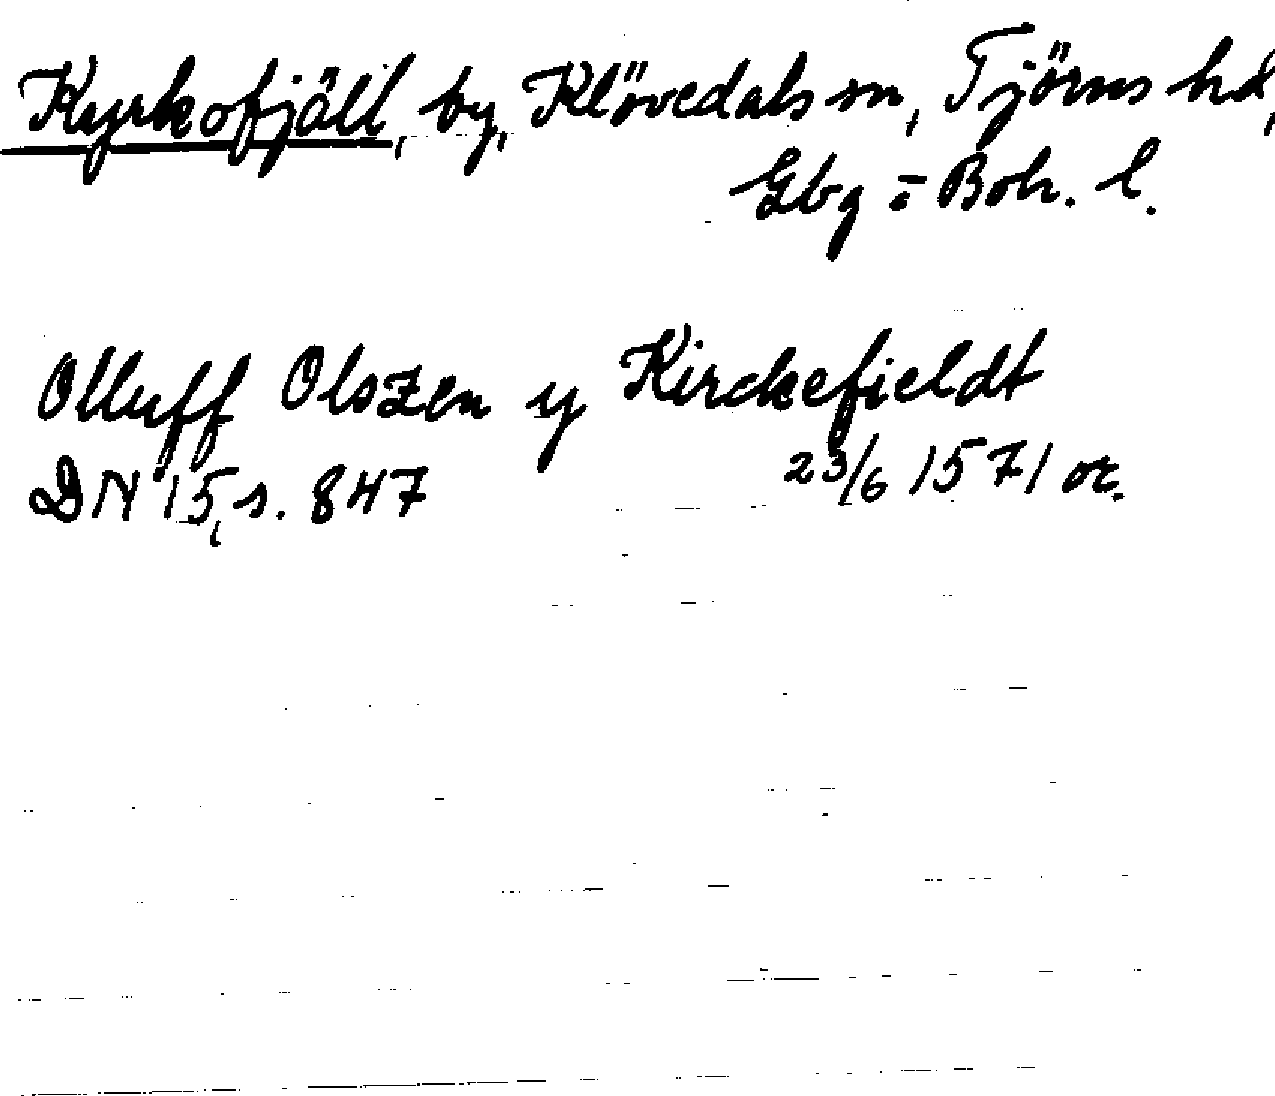 Kyrkofjäll, by, Klövedals sn, Tjörns hd,
Gbg = Boh. l.
Olluff Olszen y Kirckefieldt
DN 15, s. 847 23/6 1571 or.